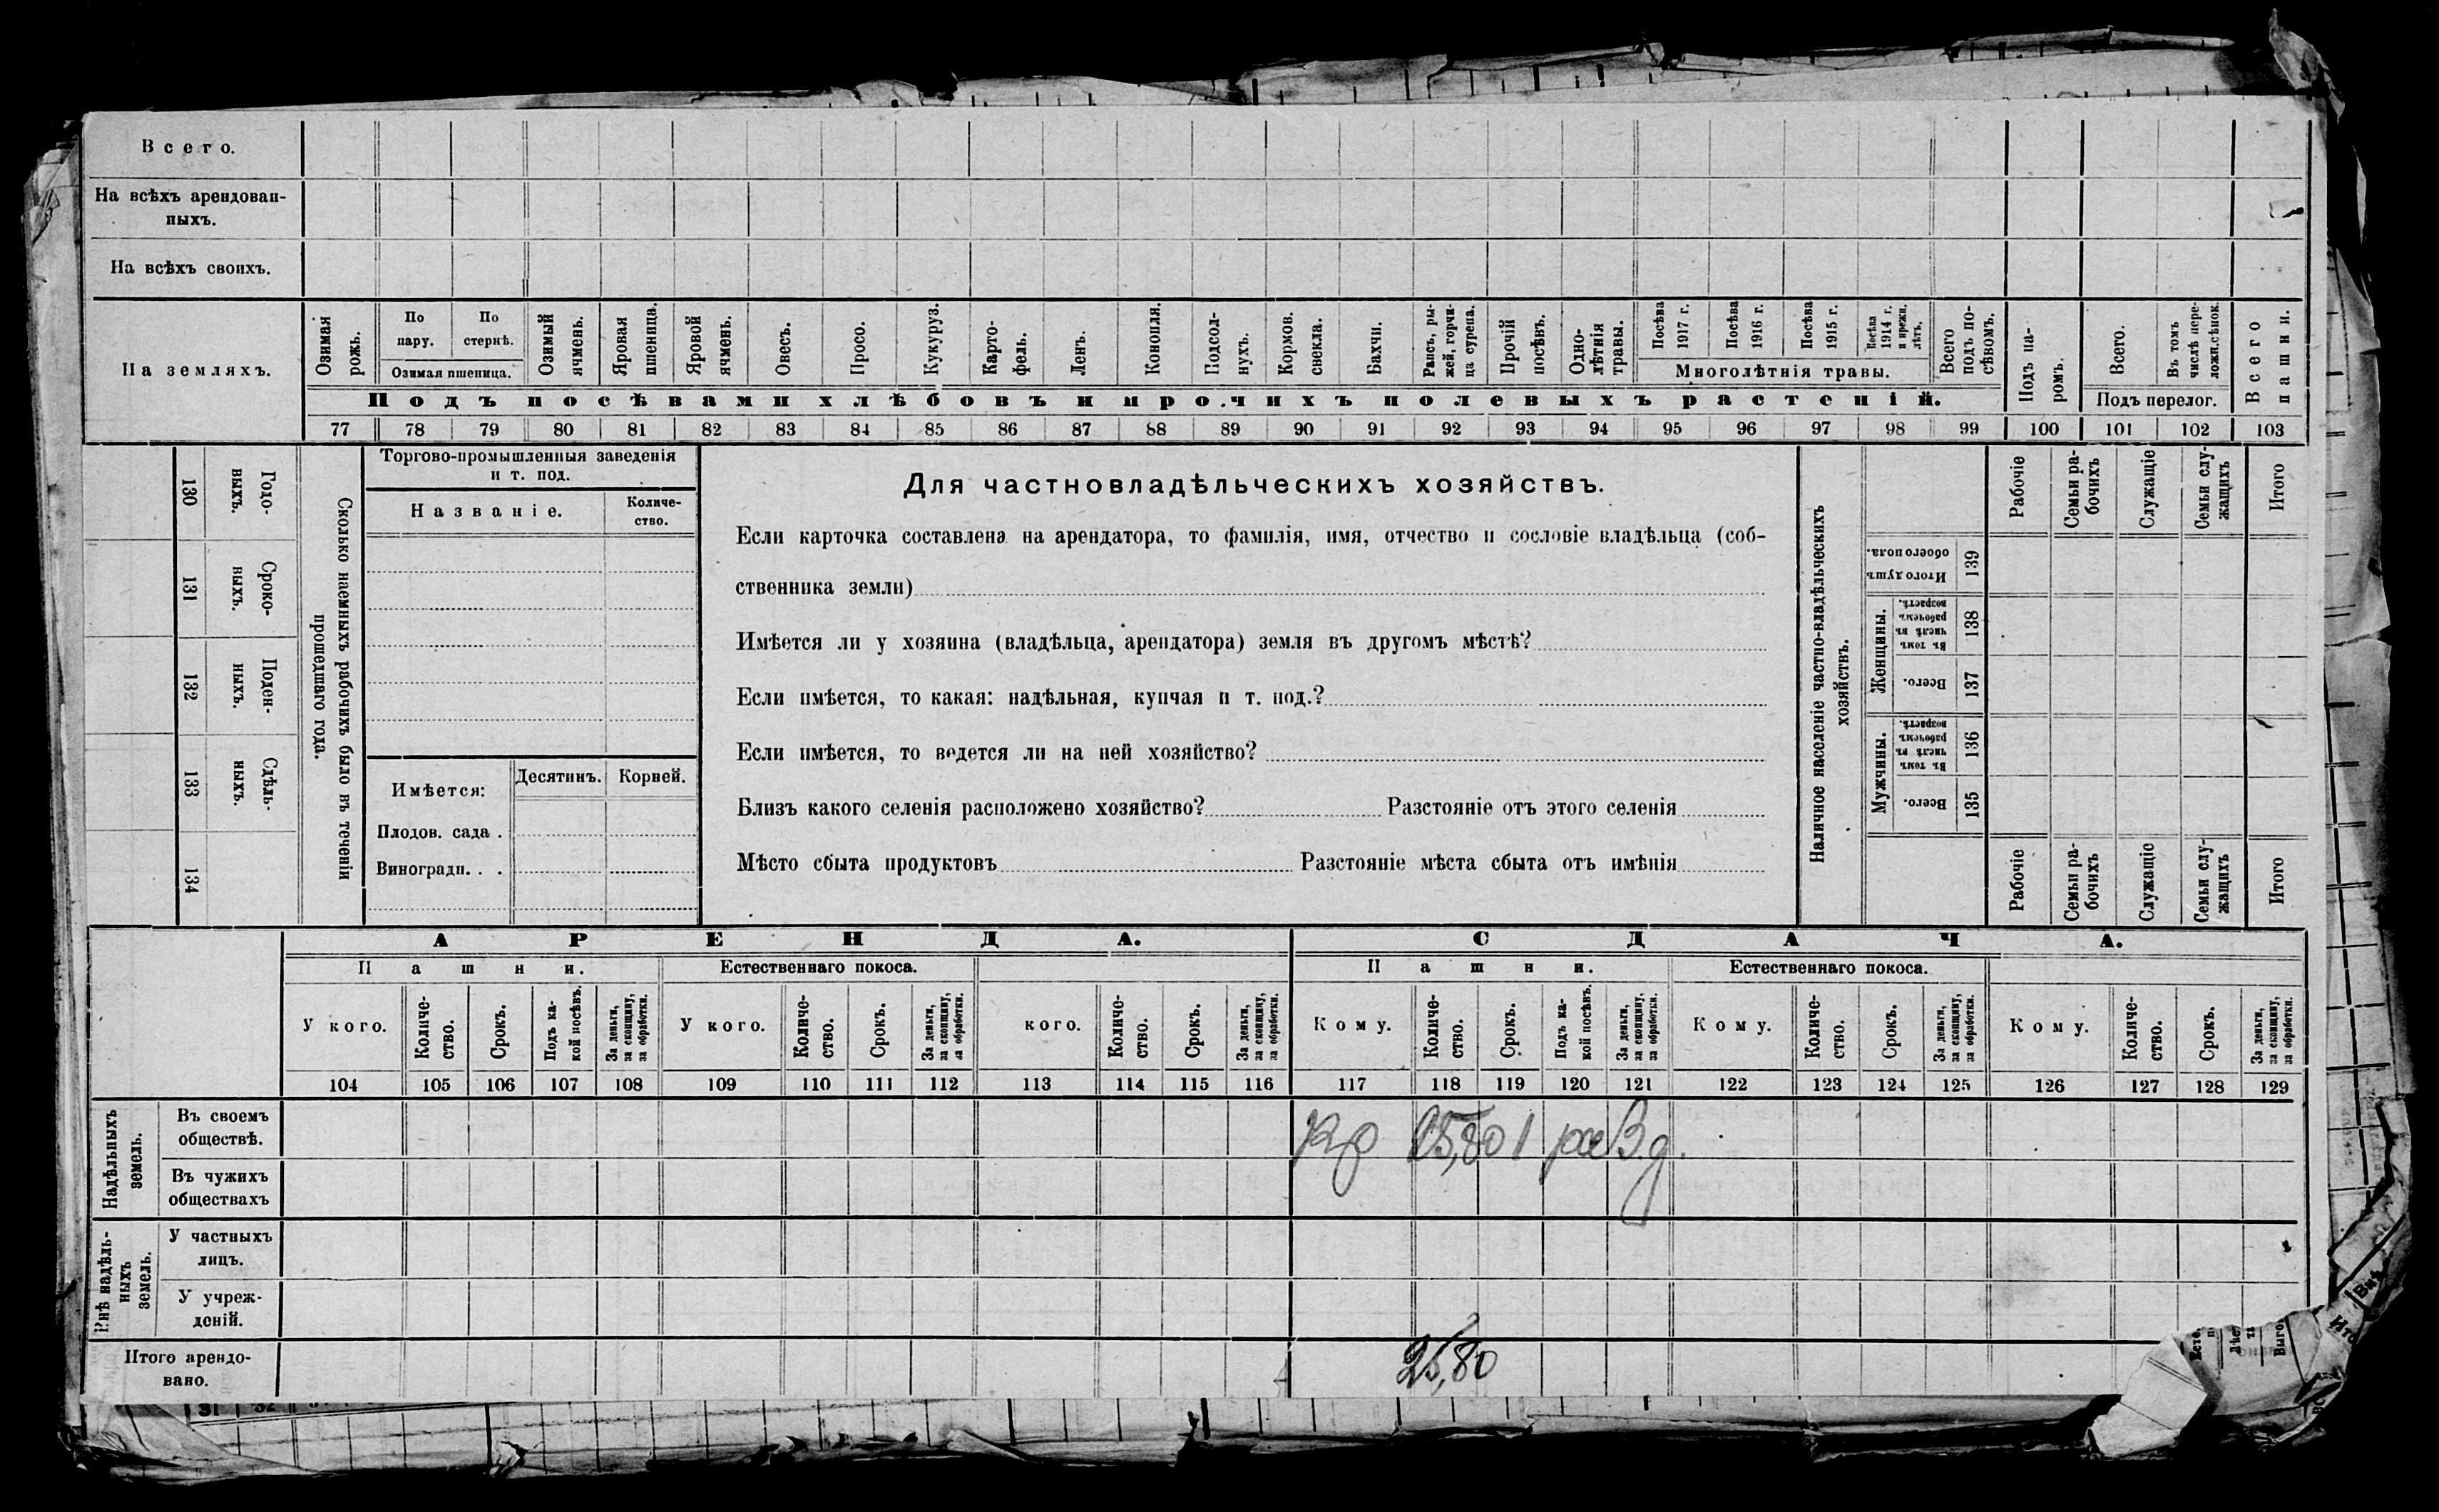 Всего.
На всѣхъ арендован-
ныхъ.
На всѣхъ своихъ.
На земляхъ.
Озимая рожь.
По пару.
По стернѣ.
Озимая пшеница.
Озимый ячмень.
Яровая пшеница.
Яровой ячмень.
Овесъ.
Просо.
Кукуруз.
Карто-
фель.
Ленъ.
Конопля.
Подсол-
нухъ.
Кормов. свекла.
Бахчи.
Рапсъ, ры-
жей, горчи-
ца сурепа.
Прочій посѣвъ.
Одно-
лѣтнія травы.
Посѣва 1917 г.
Посѣва 1916 г.
Посѣва 1915 г.
Посѣва 1914 г. и прежн. лѣтъ.
Многолѣтнія травы.
Всего подъ по-
сѣвомъ.
Подъ посѣвами хлѣбовъ и прочихъ полевыхъ растеній.
Подъ па-
ромъ.
Всего.
Въ томъ числѣ пере-
ложн.сѣнок.
Подъ перелог.
Всего пашни.
77 78 79 80 81 82 83 84 85 86 87 88 89 90 91 92 93 94 95 96 97 98 99 100 101 102 103
130 Годо-
выхъ.
131 Сроко-
выхъ.
132 Поден-
ныхъ.
133 Сдѣль-
ныхъ.
134
Сколько наемныхъ рабочихъ было въ теченіи
прошедшаго года.
Торгово-промышленныя заведенія
и т. под.
Названіе.
Количе-
ство.
Имѣется:
Десятинъ.
Корней.
Плодов. сада .
Виноградн. . .
Для частновладѣльческихъ хозяйствъ.
Если карточка составлена на арендатора, то фамилія, имя, отчество и сословіе владѣльца (соб-
ственника земли)
Имѣется ли у хозяина (владѣльца, арендатора) земля въ другомъ мѣстѣ?
Если имѣется, то какая: надѣльная, купчая и т. под.?
Если имѣется, то ведется ли на ней хозяйство?
Близъ какого селенія расположено хозяйство? Разстояніе отъ этого селенія
Мѣсто сбыта продуктовъ Разстояніе мѣста сбыта отъ имѣнія
Наличное населеніе частно-владѣльческихъ
хозяйствъ.
Рабочіе
Семьи ра-
бочихъ
Служащіе
Семьи слу-
жащихъ
Итого
Итого душъ обоего пола. 139
Женщины.
Въ томъ числѣ въ рабочемъ возрастѣ. 138
Всего. 137
Мужчины.
Въ томъ числѣ въ рабочемъ возрастѣ. 136
Всего. 135
Рабочіе
Семьи ра-
бочихъ
Служащіе
Семьи слу-
жащихъ
Итого
АРЕНДА.
СДАЧА.
Пашни.
Естественнаго покоса.
Пашни.
Естественнаго покоса.
У кого.
Количе-
ство.
Срокъ.
Подъ ка-
кой посѣвъ.
За деньги, за скопщину, за обработки.
У кого.
Количе-
ство.
Срокъ.
За деньги, за скопщину, за обработки.
кого.
Количе-
ство.
Срокъ.
За деньги, за скопщину, за обработки.
Кому.
Количе-
ство.
Срокъ.
Подъ ка-
кой посѣвъ.
За деньги, за скопщину, за обработки.
Кому.
Количе-
ство.
Срокъ.
За деньги, за скопщину, за обработки.
Кому.
Количе-
ство.
Срокъ.
За деньги, за скопщину, за обработки.
104 105 106 107 108 109 110 111 112 113 114 115 116 117 118 119 120 121 122 123 124 125 126 127 128 129
Надѣльныхъ
земель.
Въ своемъ
обществѣ.
Кр 25,80 1
Въ чужихъ
обществахъ
Внѣ надѣль-
ныхъ
земель.
У частныхъ
лицъ.
У учреж-
деній.
Итого арендо-
вано.
25,80
31 32